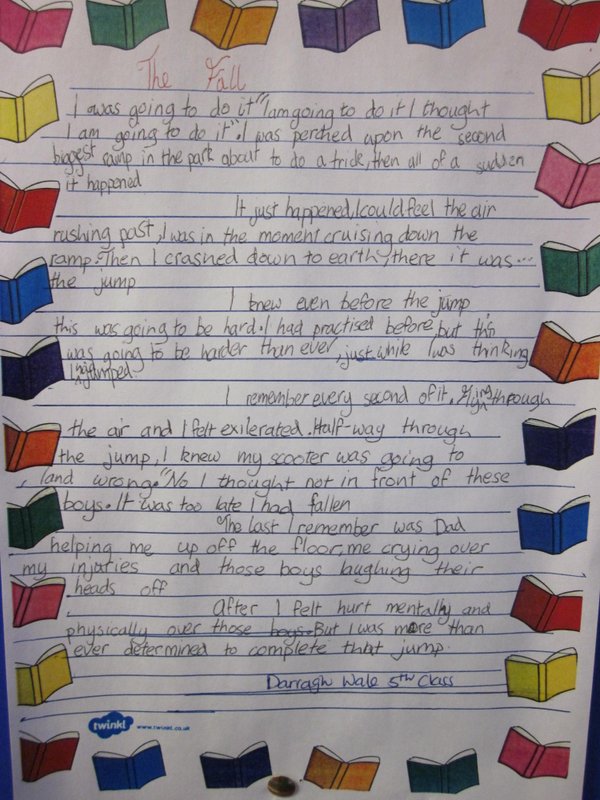 The Fall
I was going to do it "I am going to do it I thought
I am going to do it". I was perched upon the second
biggest ramp in the park about to do a trick, then all of a sudden
it happened
It just happened, I could feel the air
rushing past, I was in the moment cruising down the
ramp. Then I crashed down to earth, there it was...
the jump
I knew even before the jump
this was going to be hard. I had practised before, but this
was going to be harder than ever, just while I was thinking
I jumped.
I remember every second of it, flying through
the air and I felt exilerated. Half-way through
the jump, I knew my scooter was going to
land wrong. "No I thought not in front of these
boys. It was too late I had fallen
The last I remember was Dad
helping me up off the floor, me crying over
my injuries and those boys laughing their
heads off
After I felt hurt mentally and
physically over those boys. But I was more than
ever determined to complete that jump.
Darragh Wale 5th Class
twinkl www.twinkl.co.uk